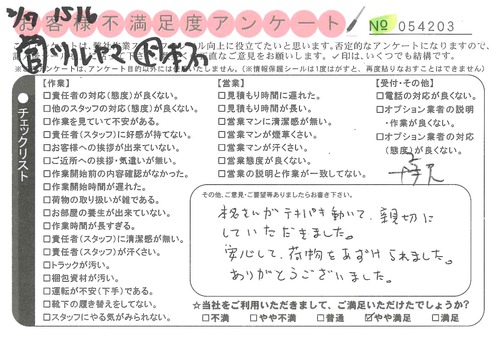 1/9 1516
お客様不満足度アンケート
No 054203
ツルヤマ
このアンケートは、弊社作業スタッフのレベル向上に役立てたいと思います。否定的なアンケートになりますので、
直なご意見をお願いします。✓印は、いくつでも結構です。
アンケート目的以外には使用いたしません。(※情報保護シールは1度はがすと、再度貼りなおすことはできません。)
チェックリスト
【作業】
□責任者の対応(態度)が良くない。
□他のスタッフの対応(態度)が良くない。
□作業を見ていて不安がある。
□責任者(スタッフ)に好感が持てない。
□お客様への挨拶が出来ていない。
□ご近所への挨拶・気遣いが無い。
□作業開始前の内容確認がなかった。
□作業開始時間が遅れた。
□荷物の取り扱いが雑である。
□お部屋の養生が出来ていない。
□作業時間が長すぎる。
□責任者(スタッフ)に清潔感が無い。
□責任者(スタッフ)が汗くさい。
□トラックが汚い。
□梱包資材が汚い。
□運転が不安(下手)である。
□靴下の履き替えをしてない。
□スタッフにやる気がみられない。
【営業】
□見積もり時間に遅れた。
□見積もり時間が長い。
□営業マンに清潔感が無い。
□営業マンが煙草くさい。
□営業マンが汗くさい。
□営業態度が良くない。
□営業の説明と作業が一致してない。
【受付・その他】
□電話の対応が良くない。
□オプション業者の説明
・作業が良くない。
□オプション業者の対応
(態度)が良くない。
その他、ご意見・ご要望等ありましたらお書き下さい。
格さんがテキパキ動いて、親切に
していただきました。
安心して、荷物をあずけられました。
ありがとうございました。
☆当社をご利用いただきまして、ご満足いただけたでしょうか?
□不満 □やや不満 □普通 ☑やや満足 □満足